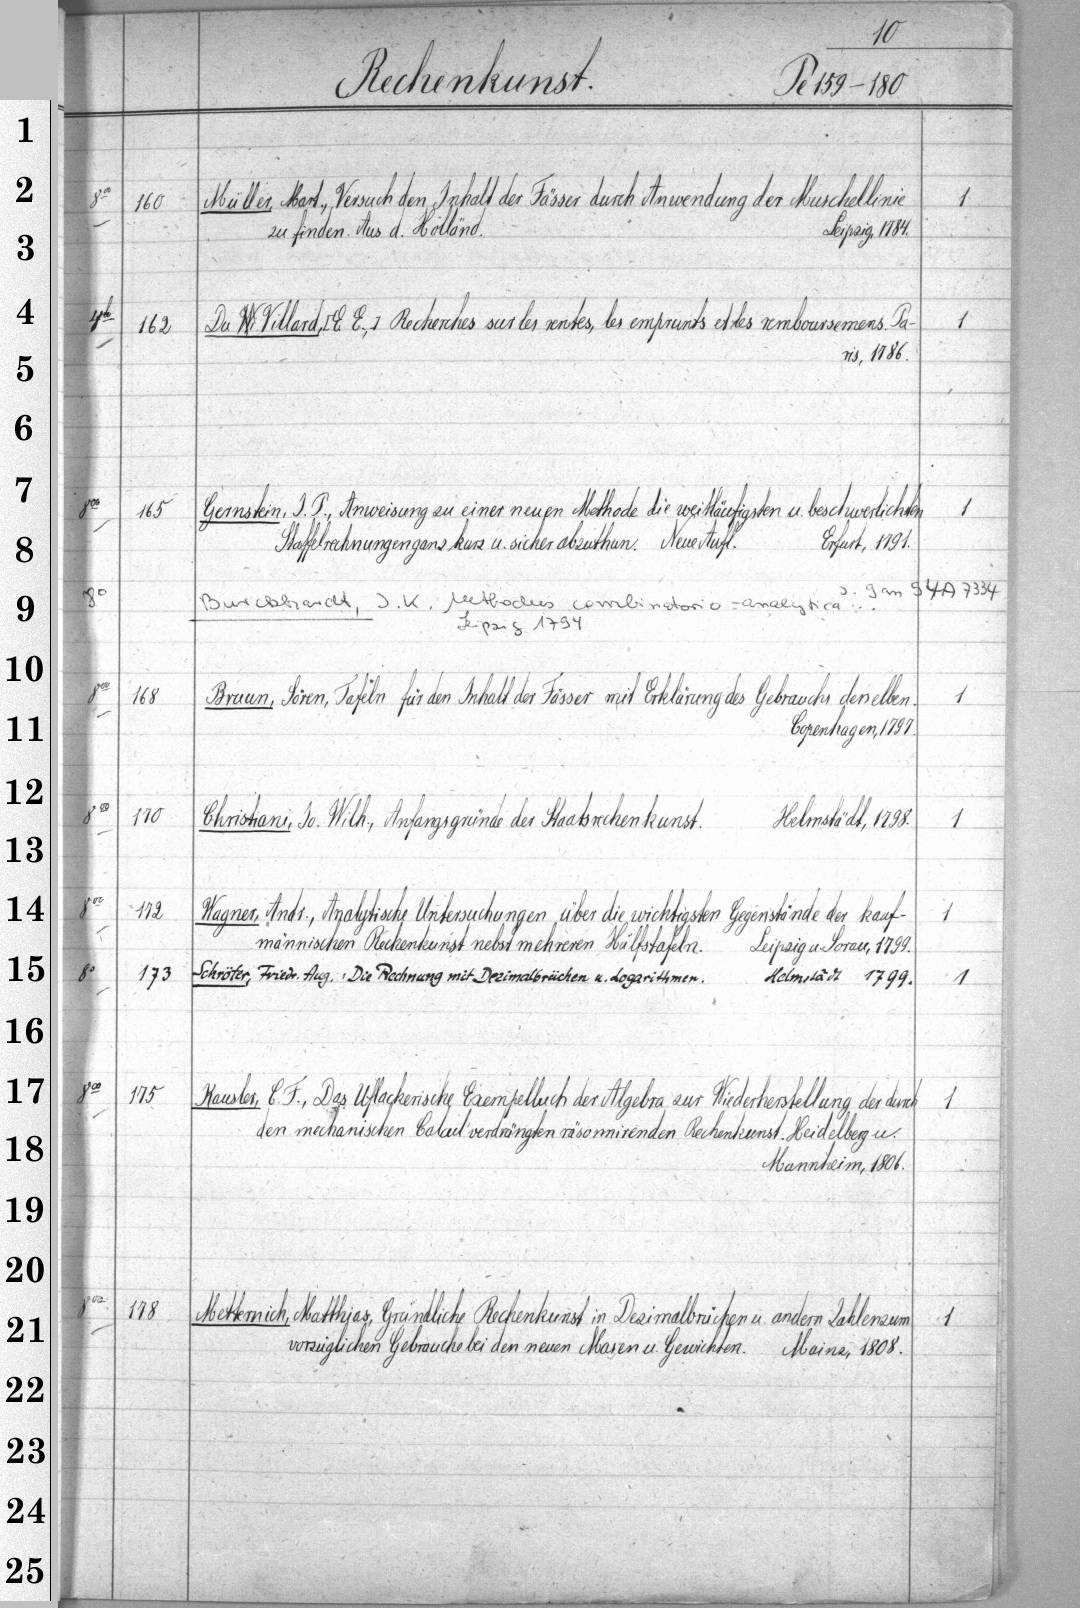 10
Rechenkunst. Pe 159-180
1
2
8vo 160 Müller, Mart., Versuch den Inhalt der Fässer durch Anwendung der Muschellinie 1
zu finden. Aus d. Holländ. Leipzig, 1784.
3
4
4to 162 Du Villard, [E. E.,] Recherches sur les rentes, les emprunts et les remboursemens. Pa- 1
ris, 1786.
5
6
7
8vo 165 Gernstein, J. P., Anweisung zu einer neuen Methode die weitläufigsten u. beschwerlichsten 1
8
Staffelrechnungen ganz kurz u. sicher abzuthun. Neue Aufl. Erfurt, 1791.
9
8° Burckhardt, J. K. Methodus combinatorio-analytica ... s. 9 in 94A 7334
Leipzig 1794
10
8vo 168 Bruun, Sören, Tafeln für den Inhalt der Fässer mit Erklärung des Gebrauchs derselben. 1
11
Copenhagen, 1797.
12
8vo 170 Christiani, Jo. Wilh., Anfangsgründe der Staatsrechenkunst. Helmstädt, 1798. 1
13
14
8vo 172 Wagner, Andr., Analytische Untersuchungen über die wichtigsten Gegenstände der kauf- 1
männischen Rechenkunst nebst mehreren Hülfstafeln. Leipzig u. Sorau, 1799.
15
8° 173 Schröter, Friedr. Aug.: Die Rechnung mit Dezimalbrüchen u. Logarithmen. Helmstädt 1799. 1
16
17
8vo 175 Kausler, C. F., Das Uflackerische Exempelbuch der Algebra zur Wiederherstellung der durch 1
den mechanischen Calcul verdrängten räsonnirenden Rechenkunst. Heidelberg u.
18
Mannheim, 1806.
19
20
8vo 178 Metternich, Matthias, Gründliche Rechenkunst in Dezimalbrüchen u. andern Zahlen zum 1
21
vorzüglichen Gebrauche bei den neuen Masen u. Gewichten. Mainz, 1808.
22
23
24
25